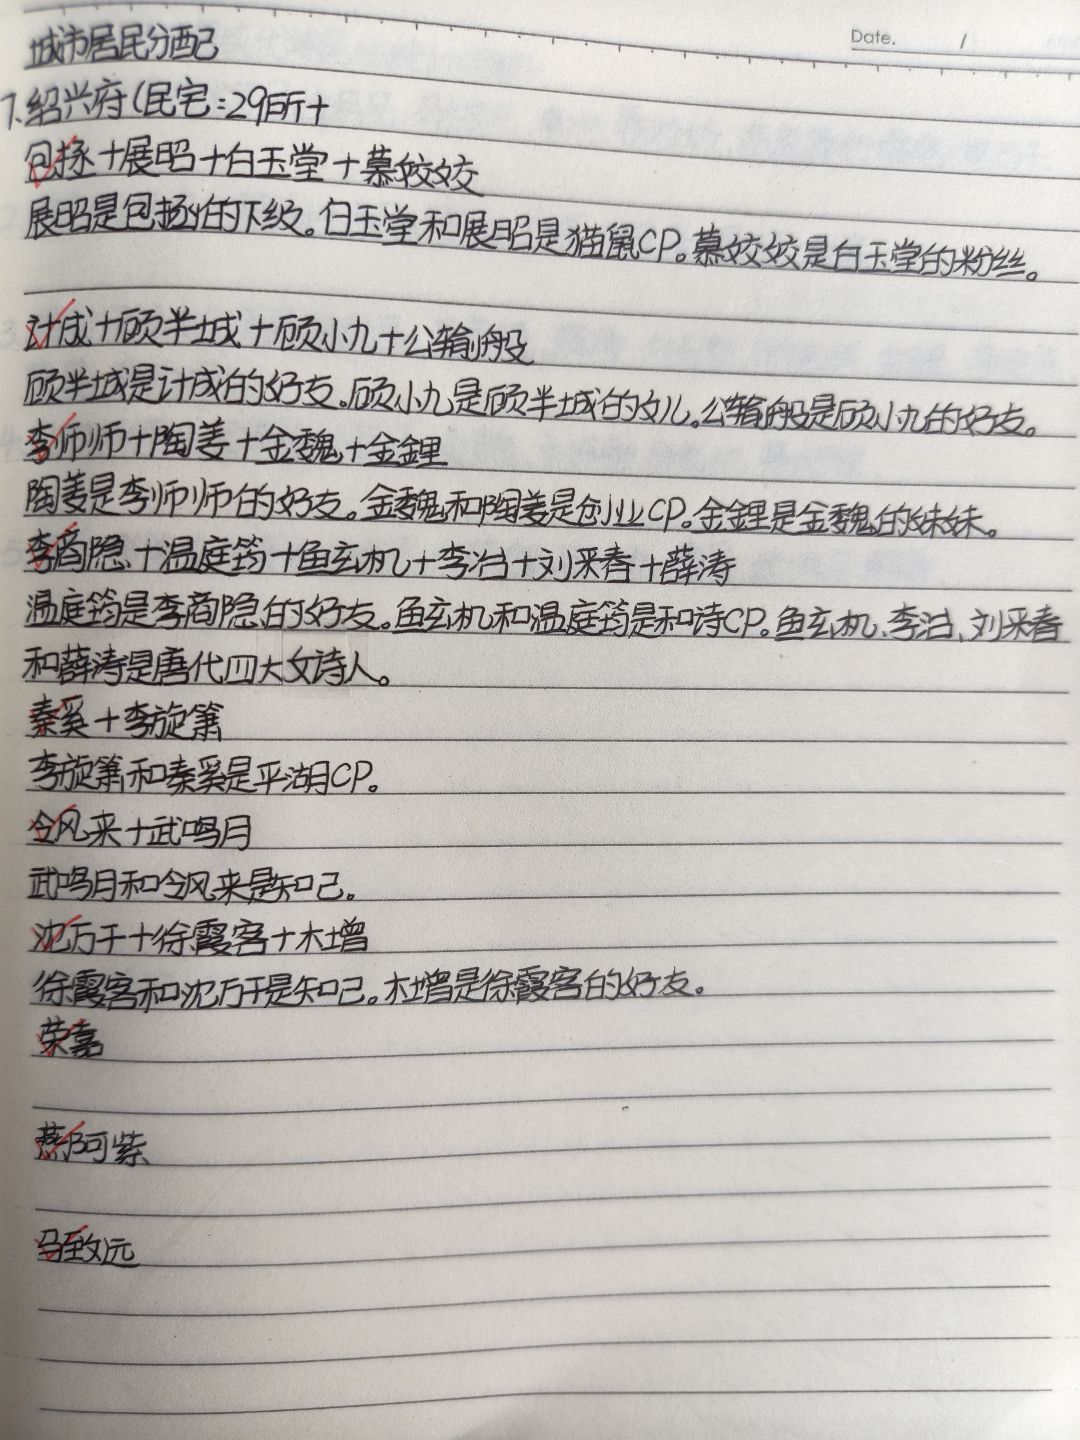 Date. /
城市居民分配
7.绍兴府(民宅:29所+
包拯+展昭+白玉堂+慕姣姣
展昭是包拯的下级。白玉堂和展昭是猫鼠CP。慕姣姣是白玉堂的粉丝。
计成+顾半城+顾小九+公输般
顾半城是计成的好友。顾小九是顾半城的女儿。公输般是顾小九的好友。
李师师+陶姜+金魏+金鋰
陶姜是李师师的好友。金魏和陶姜是创业CP。金鋰是金魏的妹妹。
李商隐+温庭筠+鱼玄机+李冶+刘采春+薛涛
温庭筠是李商隐的好友。鱼玄机和温庭筠是和诗CP。鱼玄机、李冶、刘采春
和薛涛是唐代四大女诗人。
秦奚+李旋箫
李旋箫和秦奚是平湖月CP。
令风来+武鸣月
武鸣月和令风来是知己。
沈万千+徐霞客+木增
徐霞客和沈万千是知己。木增是徐霞客的好友。
荣嘉
燕阿紫
马致远